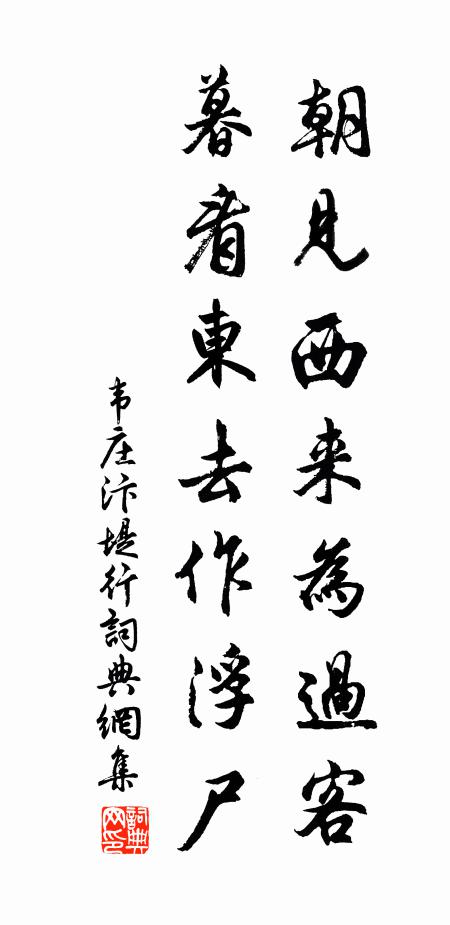 朝見西来為過客
暮看東去作浮尸
韦庄汴堤行詞典網集
詞典网印